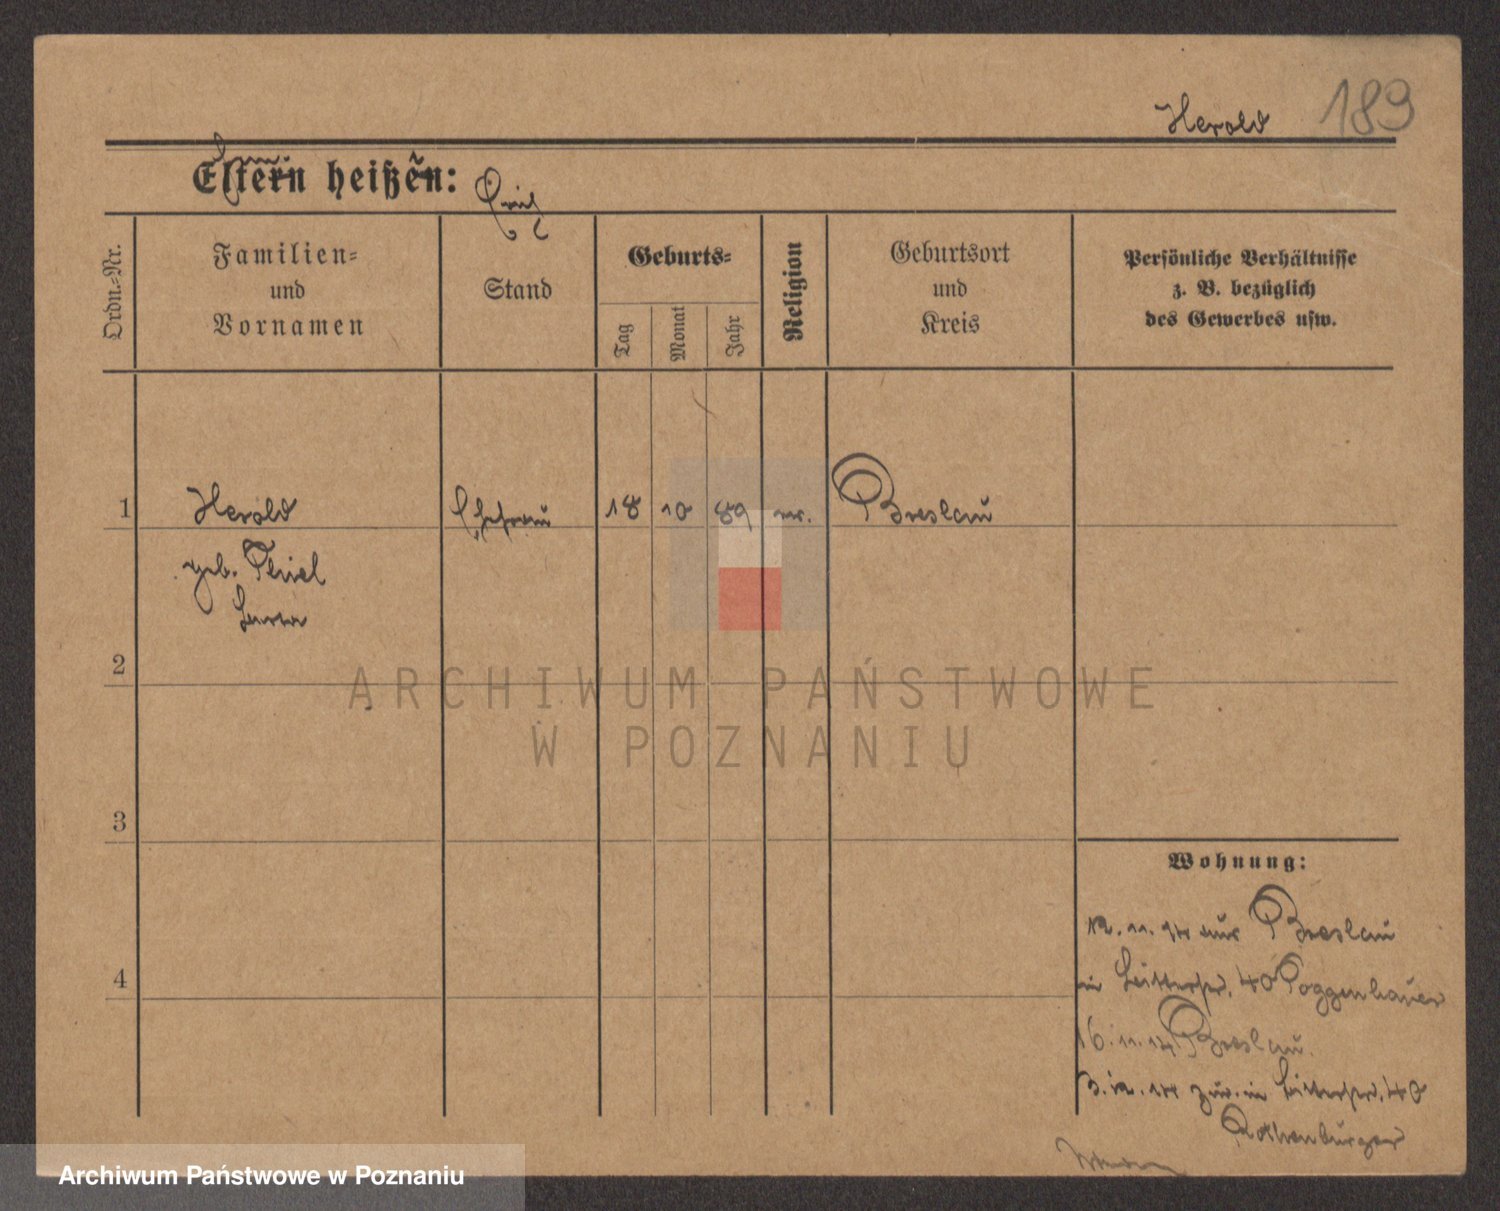 Herold 189
Eltern heißen:
Ordn.=Nr.
Familien=
und
Vornamen
Stand
Geburts=
Tag
Monat
Jahr
Religion
Geburtsort
und
Kreis
Persönliche Verhältnisse
z. B. bezüglich
des Gewerbes usw.
1 Herold Ehefrau 18 10 89 Breslau
geb.
2
3
4
Wohnung:
12. 11. 14 aus Breslau
in 40 Poggenhauer
16. 11. 14 Breslau.
3. 12. 14 zur. in 40
Rothenburger
ARCHIWUM PAŃSTWOWE
W POZNANIU
Archiwum Państwowe w Poznaniu